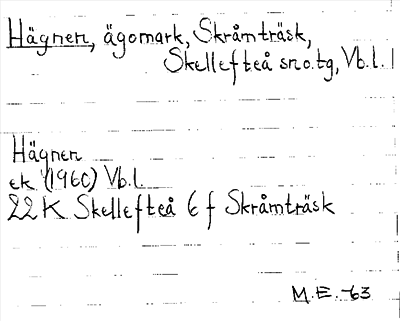 Hägnen, ägomark, Skråmträsk,
Skellefteå sn o. tg, Vb. l.
Hägnen
ek (1960) Vb. l.
22 K Skellefteå 6 f Skråmträsk
M. E. -63